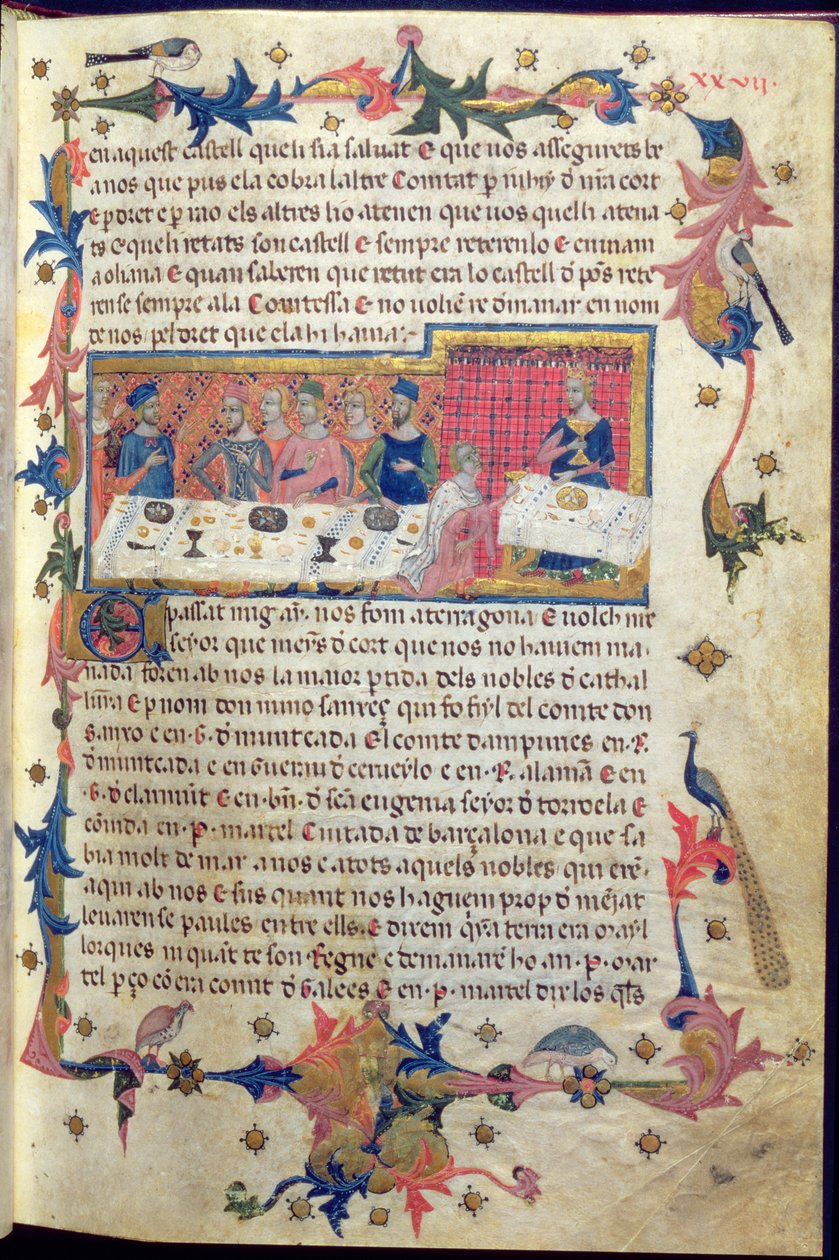 xxvij.
en aquest castell que li sia saluat E que uos assegurets be
a nos que pus ela cobra laltre Comtat p iuhij d nr̄a cort
E p dret e p rao els altres ho atenen que uos quelli atena
ts e que li retats son castell E sempre reterenlo E en inam
a oliana E quan saberen que retut era lo castell d pōs rete
rense sempre ala Comtessa E no uolien re dmanar en nom
de nos pel dret que ela hi hauia:-
E passat mig ay. nos fom a terragona E uolch nr̄e
seyor que meyns d cort que nos no hauiem ma
nada foren ab nos la maior ptida dels nobles d cathal
unya E p nom don nuno sanxeç qui fo fiyl del comte don
Sanxo e en .G. d muntcada El comte dampuries en .R.
d muntcada e en Gueraw d cerueylo e en .R. alamā E en
.G. d claramūt E en .bn. d scā eugenia seyor d torroela E
cōuida en .P. martel Ciutada de barçalona e que sa
bia molt de mar a nos e a tots aquels nobles qui erē
aqui ab nos E sus quant nos haguem prop d mēiat
leuaren se paules entre ells. E direm qn̄a terra era may l
lorques ni quāt te son Regne e demanarē ho an .P. mar
tel p ço cō era comit d Galees E en .p. martel dix los qls